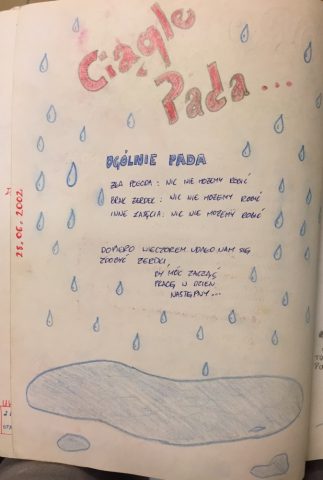 Ciągle
Pada...
OGÓLNIE PADA
ZŁA POGODA : NIC NIE MOŻEMY ROBIĆ
BRAK ŻERDEC : NIC NIE MOŻEMY ROBIĆ
INNE ZAJĘCIA : NIC NIE MOŻEMY ROBIĆ
DOPIERO WIECZOREM UDAŁO NAM SIĘ
ZDOBYĆ ŻERDKI
BY MÓC ZACZĄĆ
PRACĘ W DZIEŃ
NASTĘPNY...
28.06.2002